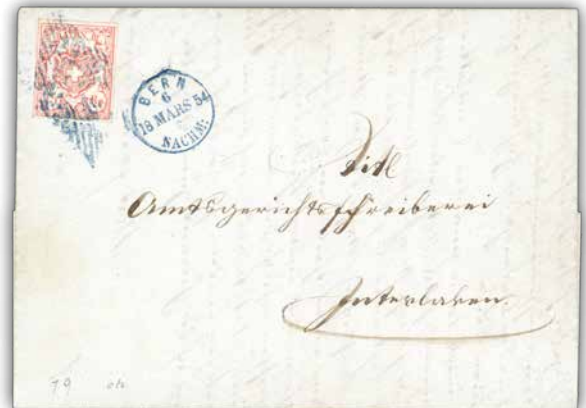 BERN
6
18 MARS 54
NACHM:
Titl
Amtsgerichtsschreiberei
Interlaken.